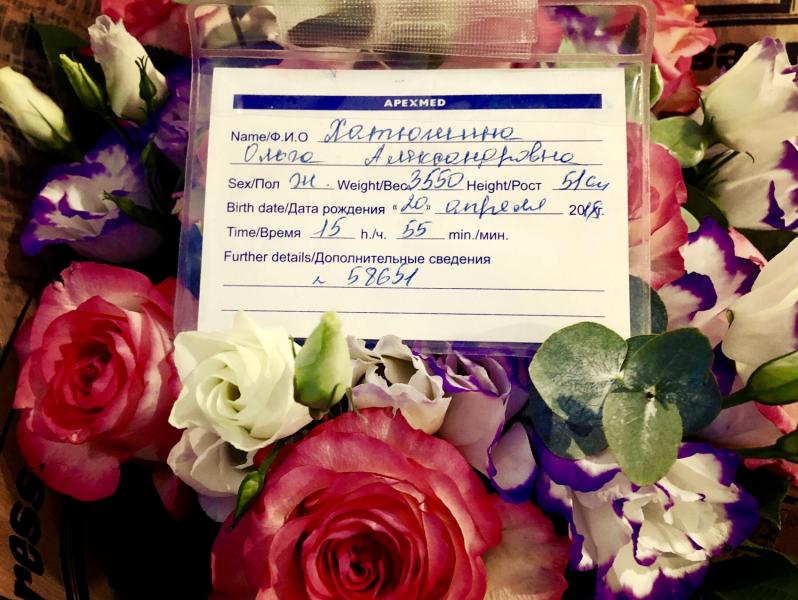 APEXMED
Name/Ф.И.О Хатюшина
Ольга Александровна
Sex/Пол Ж. Weight/Вес 3550 Height/Рост 51см
Birth date/Дата рождения «20» апреля 201 г.
Time/Время 15 h./ч. 55 min./мин.
Further details/Дополнительные сведения
58651
ress